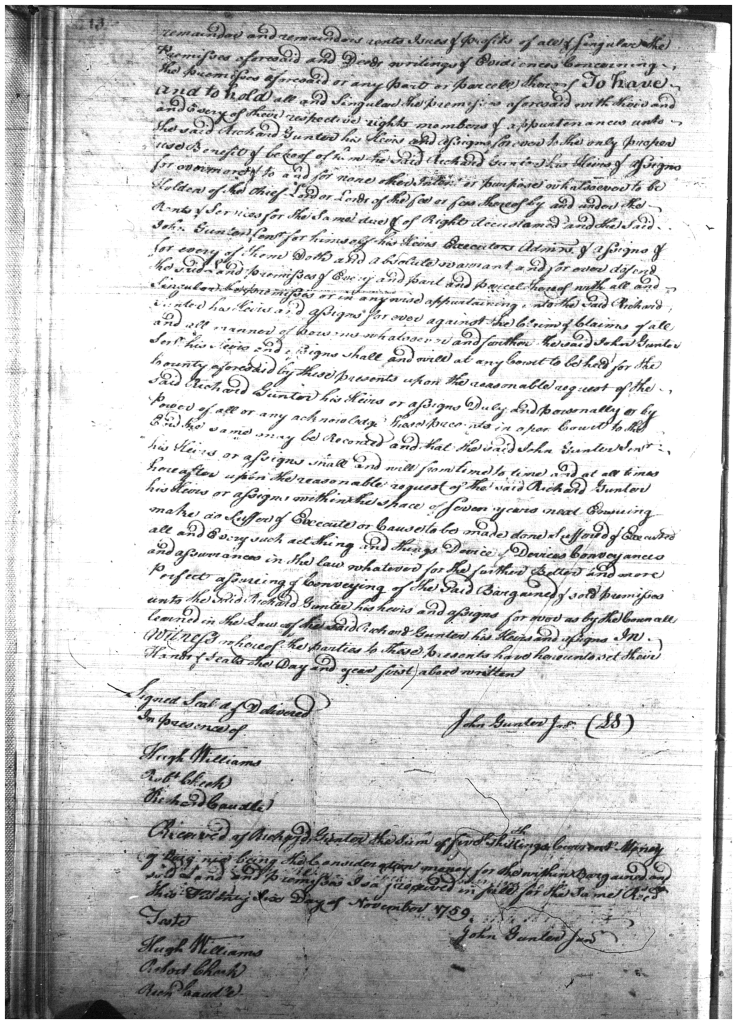 13
remainder and remainders rents Issues & profits of all & Singular the
Premisses aforesaid and Deeds writings & Evidences Concerning
the premisses aforesaid or any part or parcell thereof To have
and to hold all and Singular the premisses aforesaid with their and
and Every of their respective rights members & appurtenances unto
the said Richard Gunter his Heirs and assigns forever to the only proper
use Benefit & behoof of him the said Richard Gunter his Heirs & assigns
for evermore & to and for none other Intent or purpose whatsoever to be
Holden of the Chief Lord or Lords of the fee or fees thereof by and under the
Rents & Services for the Same due & of Right Accustamed and the Said
John Gunter Senr. for himself his Heirs Executors Admrs. & assigns &
for every of them Doth and absolute warrant and for ever defend
the said premisses & Every and part and parcel thereof with all and
Singular premisses or in anywise appurtaining unto the Said Richard
Gunter his Heirs and assigns for ever against the Claim & Claims of all
and all manner of persons whatsoever and further the said John Gunter
Senr. his Heirs and assigns shall and will at any Court to be held for the
County aforesaid by these presents upon the reasonable request of the
Said Richard Gunter his Heirs or assigns Duly and personally or by
Power of all or any acknowledge these presents in open Court to the
End the same may be Recorded and that the said John Gunter Senr
his Heirs or assigns shall and will from time to time and at all times
hereafter upon the reasonable request of the said Richard Gunter
his Heirs or assigns within the space of seven years next Ensuing
make do Suffer & Execute or Cause to be made done Suffered & Executed
all and Every such act thing and things Device & Devices Conveyances
and assurances in the law whatever for the further Better and more
Perfect assureing & Conveying of the Said Bargained & sold premisses
unto the said Richard Gunter his heirs and assigns for ever as by the Councill
learned in the Law of the said Richard Gunter his Heirs and assigns In
Witness whereof the parties to these Presents have hereunto set their
Hands & Seals the Day and year first above written
Signed Seal'd & Delivered
In presence of
John Gunter Junr. (LS)
Hugh Williams
Robt. Cheek
Richard Caudle
Received of Richard Gunter the Sum of five Shillings Current Money
of Virginia being the Consideration money for the within Bargained and
sold Land and Premisses I say received in full for the Same Recd
this Day of November 1759.
John Gunter Junr
Teste
Hugh Williams
Robert Cheek
Richd Caudle